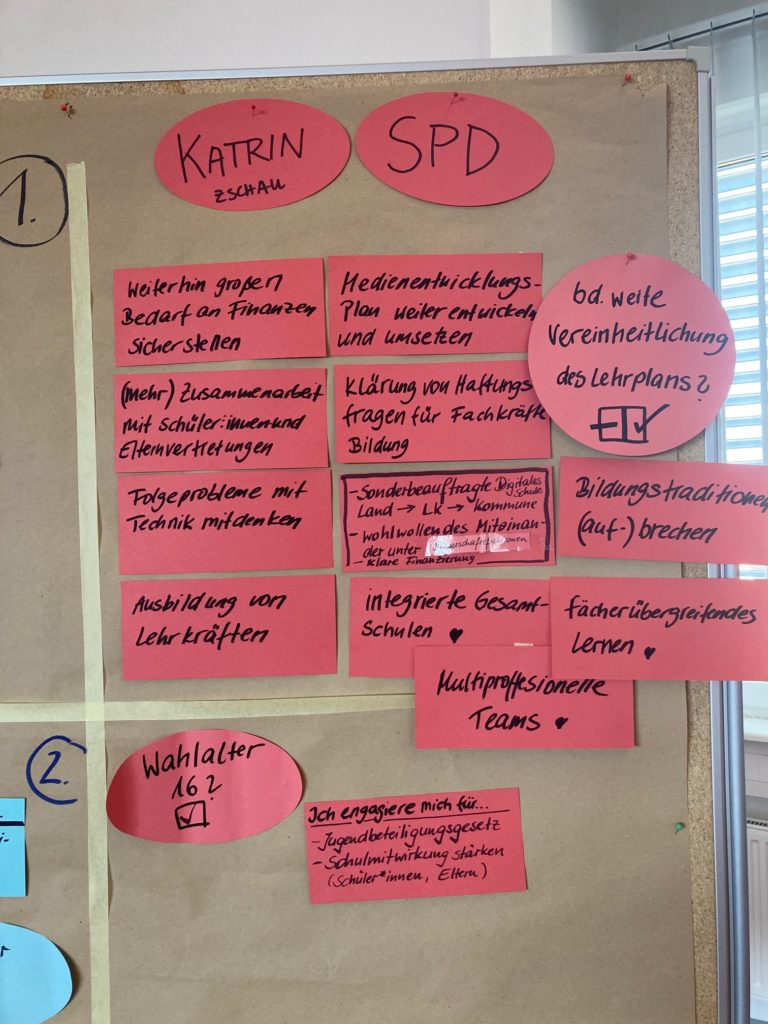 KATRIN
ZSCHAU
SPD
1.
Weiterhin großen
Bedarf an Finanzen
sicherstellen
Medienentwicklungs-
Plan weiter entwickeln
und umsetzen
bd. weite
Vereinheitlichung
des Lehrplans?
(mehr) Zusammenarbeit
mit Schüler:innen und
Elternvertretungen
Klärung von Haftungs
fragen für Fachkräfte
Bildung
Folgeprobleme mit
Technik mitdenken
- Sonderbeauftragte Digitales
Schule
Land → LK → Kommune
- wohlwollendes Miteinan-
der unter
- klare Finanzierung
Bildungstraditionen
(auf-) brechen
Ausbildung von
Lehrkräften
integrierte Gesamt-
Schulen ♥
fächerübergreifendes
Lernen ♥
Multiproffesionelle
Teams ♥
2.
Wahlalter
16?
Ich engagiere mich für...
- Jugendbeteiligungsgesetz
- Schulmitwirkung stärken
(Schüler*innen, Eltern)